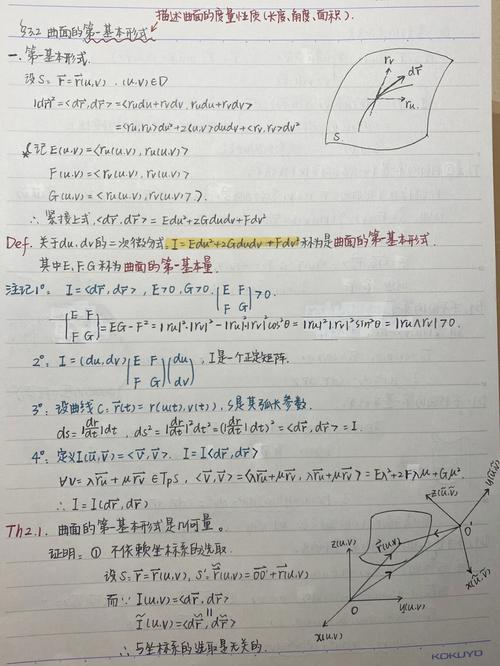 描述曲面的度量性质(长度、角度、面积).
§3.2 曲面的第一基本形式
一. 第一基本形式.
设S: r⃗=r⃗(u,v) . (u,v)∈D
|dr⃗|²=<dr⃗,dr⃗> =<rudu+rvdv, rudu+rvdv>
=<ru,ru>du²+2<u,v>dudv+<rv,rv>dv²
记E(u,v)=<ru(u,v), ru(u,v)>
F(u,v)=<rv(u,v), rv(u,v)>
G(u,v)=<ru(u,v), rv(u,v)>.
∴ 紧接上式, <dr⃗,dr⃗> = Edu²+2Gdudv+Fdv²
rv
dr⃗
ru
S
Def. 关于du,dv的二次微分式 I=Edu²+2Gdudv+Fdv² 称为是曲面的第一基本形式.
其中E,F,G称为曲面的第一基本量.
注记1°: I=<dr⃗,dr⃗>, E>0, G>0. |E F; F G|>0.
|E F; F G|=EG-F²=|ru|²·|rv|²-|ru|²|rv|²cos²θ=|ru|²|rv|²sin²θ=|ru∧rv|>0.
2°: I=(du,dv)(E F; F G)(du; dv), I是一个正定矩阵.
3°: 设曲线C: r⃗(t)=r(u(t),v(t)), s是其弧长参数.
ds=|dr⃗/dt|dt, ds²=|dr⃗/dt|²dt²=(|dr⃗/dt|dt)²=<dr⃗,dr⃗>=I.
4°: 定义I(u⃗,v⃗)=<v⃗,v⃗>. I=I<dr⃗,dr⃗>
∀v=λr⃗u+μr⃗v∈TpS, <v⃗,v⃗>=<λr⃗u+μr⃗v, λr⃗u+μr⃗v>=Eλ²+2Fλμ+Gμ².
∴ I=I(dr⃗,dr⃗)
Th2.1. 曲面的第一基本形式是几何量。
证明: ① 不依赖坐标系的选取.
设S: r⃗=r⃗(u,v), S': r̃(u,v)=O⃗O'+r⃗(u,v)
而∵ I(u,v)=<dr⃗,dr⃗>
||
Ĩ(u,v)=<dr̃,dr̃>
∴ 与坐标系的选取是无关的.
z(u,v)
r⃗(u,v)
O
x(u,v)
y(u,v)
O'
z(ũ,ṽ)
y(ũ,ṽ)
x(ũ,ṽ)
KOKUYO